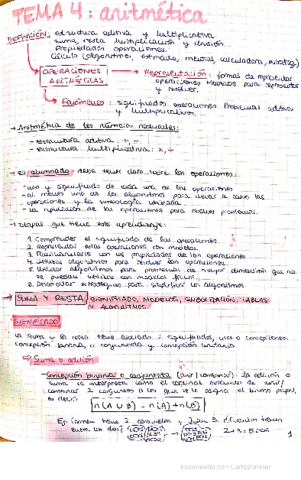 TEMA 4: aritmética
DEFINICIÓN: estructura aditiva y multiplicativa
suma, resta multiplicación y división
Propiedades operaciones.
Cálculo (algoritmos, estimado, mental, calculadora,
OPERACIONES ARITMÉTICAS
Representación: formas de representar
operaciones modelos para representar
y resolver.
Fenómeno: significados operaciones problemas aditivos
y multiplicativos.
→ Aritmética de los números naturales:
- estructura aditiva: +, -
- estructura multiplicativa: x, ÷
→ El alumnado debe tener claro sobre las operaciones:
- uso y significado de cada una de las operaciones
- al menos uno de los algoritmos para llevar a cabo las
operaciones y la simbología utilizada
- La aplicación de las operaciones para resolver problemas.
→ Etapas que tiene este aprendizaje:
1. Comprender el significado de las operaciones.
2. Representar estas operaciones con modelos.
3. Familiarizarse con las propiedades de las operaciones
4. Utilizar algoritmos para resolver las operaciones.
5. Utilizar algoritmos para problemas de mayor dimensión que no
se puedan utilizar con modelos físicos.
6. Desarrollar estrategias para simplificar los algoritmos
→ SUMA Y RESTA: SIGNIFICADO, MODELOS, SIMBOLIZACIÓN, TABLAS
Y ALGORITMOS
SIGNIFICADO
La suma y la resta tienen asociado 2 significados, usos o concepciones:
concepción binaria o conjuntista y concepción unitaria
→ Suma o adición
- Concepción binaria o conjuntista (unir/combinar): la adición o
suma se interpreta como el cardinal obtenido de unir/
combinar 2 conjuntos a los que se le asigna el mismo papel,
es decir:
n(A ∪ B) = n(A) + n(B)
Ej: Carmen tiene 2 caramelos y Juan 3. ¿Cuántos tienen
entre los dos?
2+3=5
1
Escaneado con CamScanner